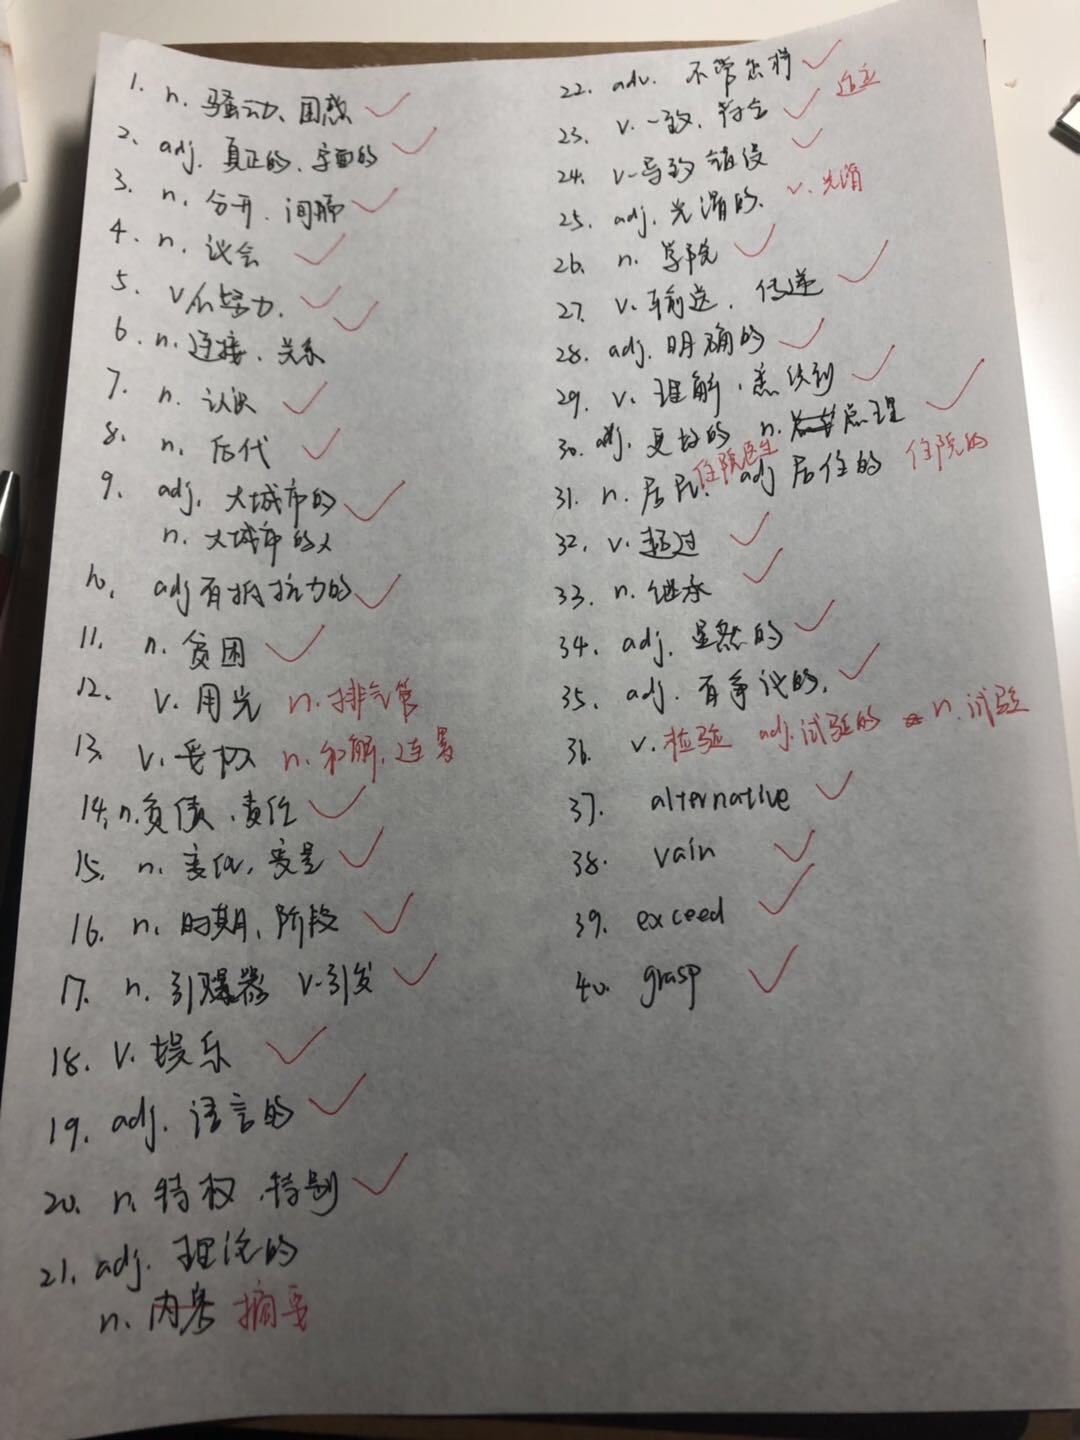 1. n. 骚动、困惑
2. adj. 真正的、字面的
3. n. 分开、间隔
4. n. 议会
5. v/n 努力.
6. n. 连接、关系
7. n. 认识
8. n. 后代
9. adj. 大城市的
n. 大城市的人
10. adj 有抵抗力的
11. n. 贫困
12. v. 用光 n. 排气管
13. v. n. 和解,
14. n. 负债、责任
15. n. 变化, 变量
16. n. 时期、阶段
17. n. 引爆器 v. 引发
18. v. 娱乐
19. adj. 语言的
20. n. 特权、特别
21. adj. 理论的
n. 内容 摘要
22. adv. 不管怎样
23. v. 一致、符合 适应
24. v. 导致
25. adj. 光滑的. v. 光滑
26. n. 学院
27. v. 输送、传递
28. adj. 明确的
29. v. 理解、意识到
30. adj. 更好的 n.
31. n. 居民. 住院医生 adj 居住的 住院的
32. v. 超过
33. n. 继承
34. adj. 显然的
35. adj. 有争议的.
36. v. 检验 adj. 试验的 n. 试验
37. alternative
38. vain
39. exceed
40. grasp